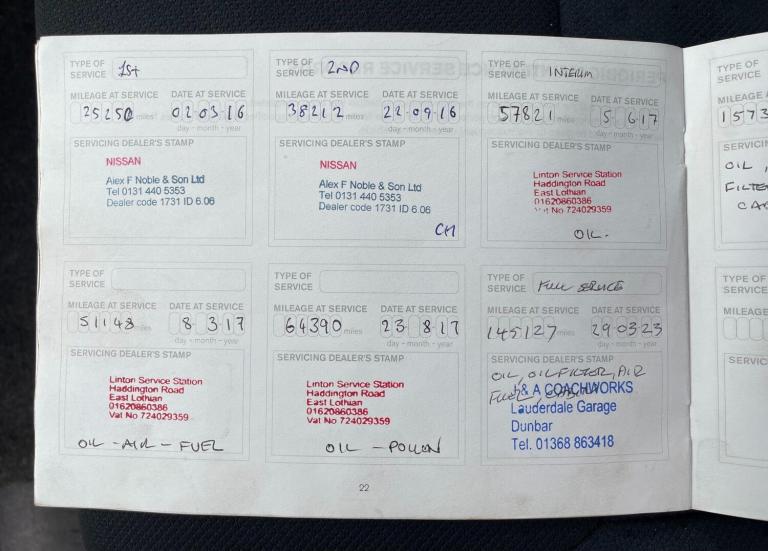 TYPE OF SERVICE 1st
MILEAGE AT SERVICE DATE AT SERVICE
25250 miles 02-03-16
day - month - year
SERVICING DEALER'S STAMP
NISSAN
Alex F Noble & Son Ltd
Tel 0131 440 5353
Dealer code 1731 ID 6.06
TYPE OF SERVICE 2ND
MILEAGE AT SERVICE DATE AT SERVICE
38212 miles 22-09-16
day - month - year
SERVICING DEALER'S STAMP
NISSAN
Alex F Noble & Son Ltd
Tel 0131 440 5353
Dealer code 1731 ID 6.06
CH
TYPE OF SERVICE INTERIM
MILEAGE AT SERVICE DATE AT SERVICE
57821 miles 5 6.17
day - month - year
SERVICING DEALER'S STAMP
Linton Service Station
Haddington Road
East Lothian
01620860386
No 724029359
OIL.
TYPE OF SERVICE
MILEAGE AT SERVICE DATE AT SERVICE
51148 miles 8-3-17
day - month - year
SERVICING DEALER'S STAMP
Linton Service Station
Haddington Road
East Lothian
01620860386
Vat No 724029359
OIL - AIR - FUEL
TYPE OF SERVICE
MILEAGE AT SERVICE DATE AT SERVICE
64390 miles 23-8-17
day - month - year
SERVICING DEALER'S STAMP
Linton Service Station
Haddington Road
East Lothian
01620860386
Vat No 724029359
OIL - POLLEN
TYPE OF SERVICE Full service
MILEAGE AT SERVICE DATE AT SERVICE
145127 miles 290323
day - month - year
SERVICING DEALER'S STAMP
OIL, OIL FILTER, AIR
FUEL,
& A COACHWORKS
Lauderdale Garage
Dunbar
Tel. 01368 863418
22
TYPE OF
SERVICE
MILEAGE
1573
OIL,
TYPE OF
SERVICE
MILEAGE